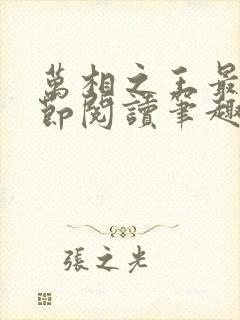 萬相之王最
節閱讀筆趣
張之光